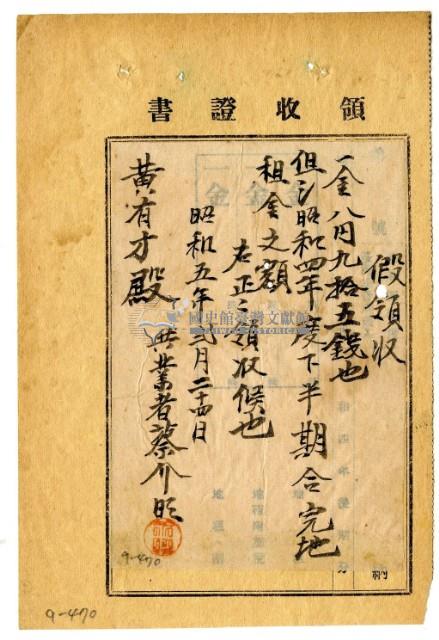 領收證書
假領収
一金八円九拾五錢也
但シ昭和四年度下半期合完地
租金之額
右正ニ領収候也
昭和五年弐月二十四日
業者蔡介昭
黃有才殿
國史館臺灣文獻館
9-470
9-470